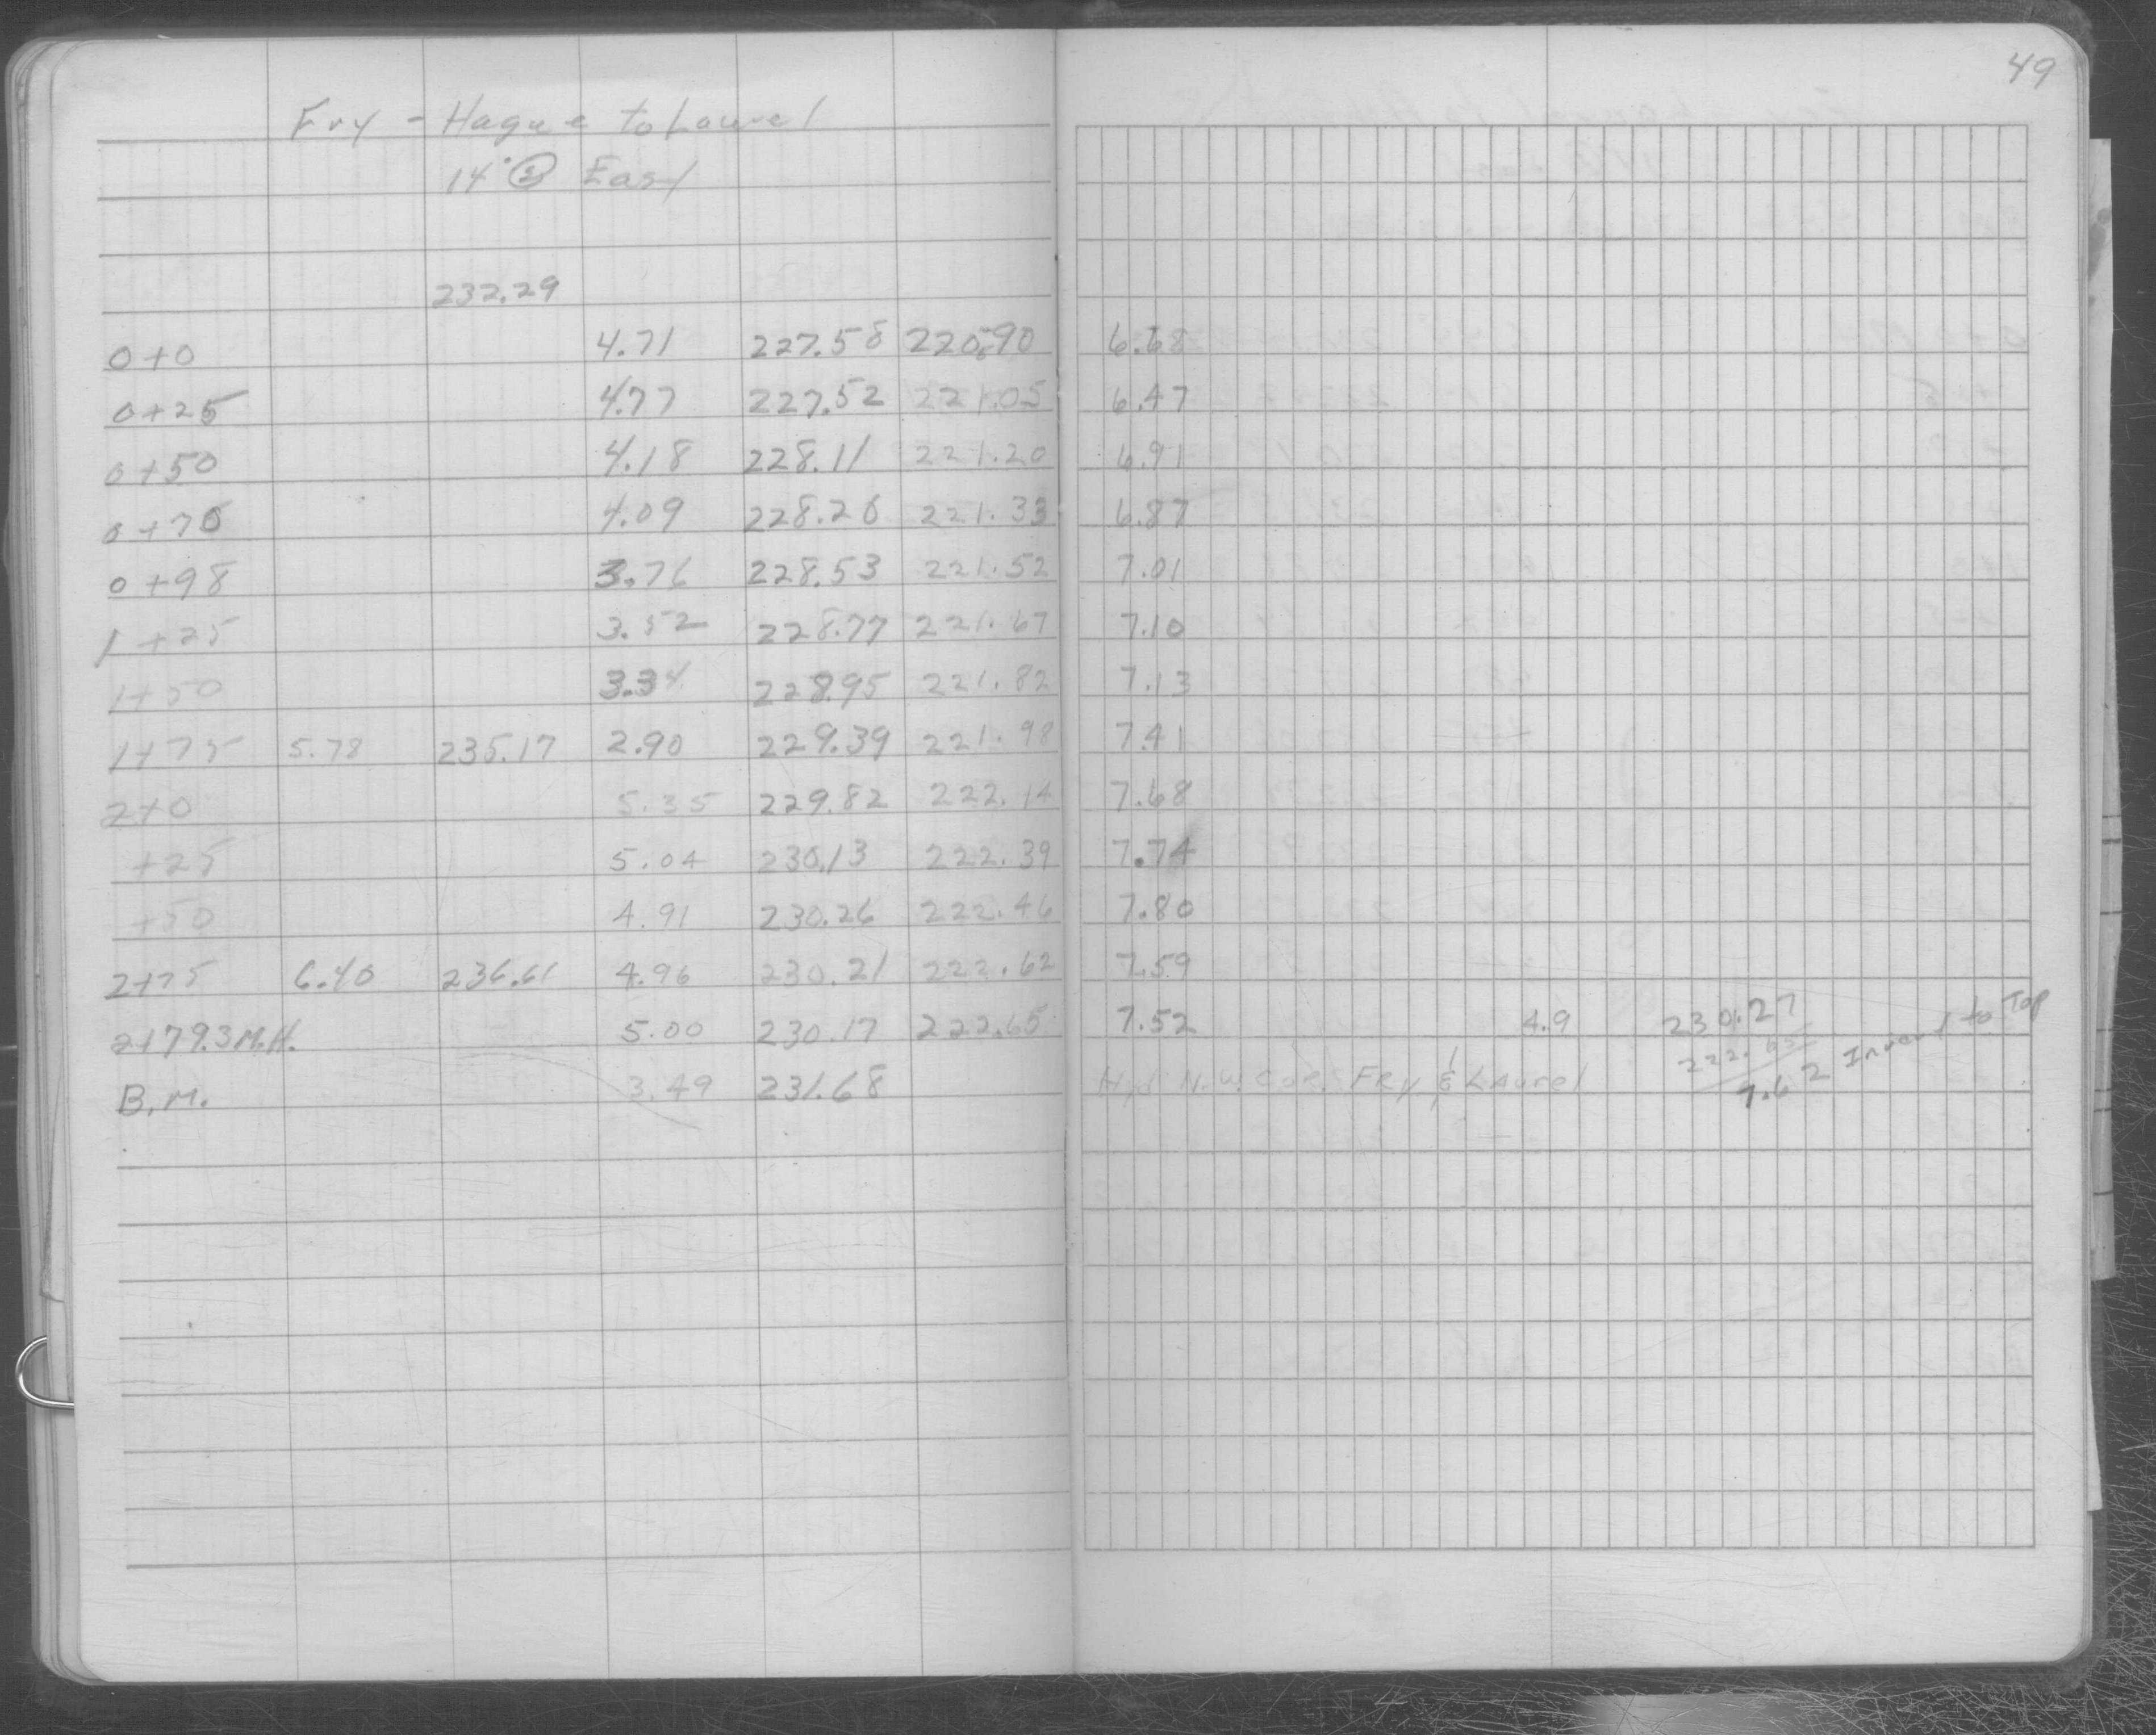 49
Fry - Hague to Laurel
14' ② East
232.29
0+0 4.71 227.58 220.90 6.68
0+25 4.77 227.52 221.05 6.47
0+50 4.18 228.11 221.20 6.91
0+75 4.09 228.20 221.33 6.87
0+98 3.76 228.53 221.52 7.01
1+25 3.52 228.77 221.67 7.10
1+50 3.34 228.95 221.82 7.13
1+75 5.78 235.17 2.90 229.39 221.98 7.41
2+0 5.35 229.82 222.14 7.68
+25 5.04 230.13 222.39 7.74
+50 4.91 230.26 222.46 7.80
2+75 6.40 236.61 4.96 230.21 222.62 7.59
2+79.3 M.H. 5.00 230.17 222.65 7.52 4.9 230.27
222.65
7.62 Invert to Top
B.M. 3.49 231.68 N.W. COR. FRY & LAUREL